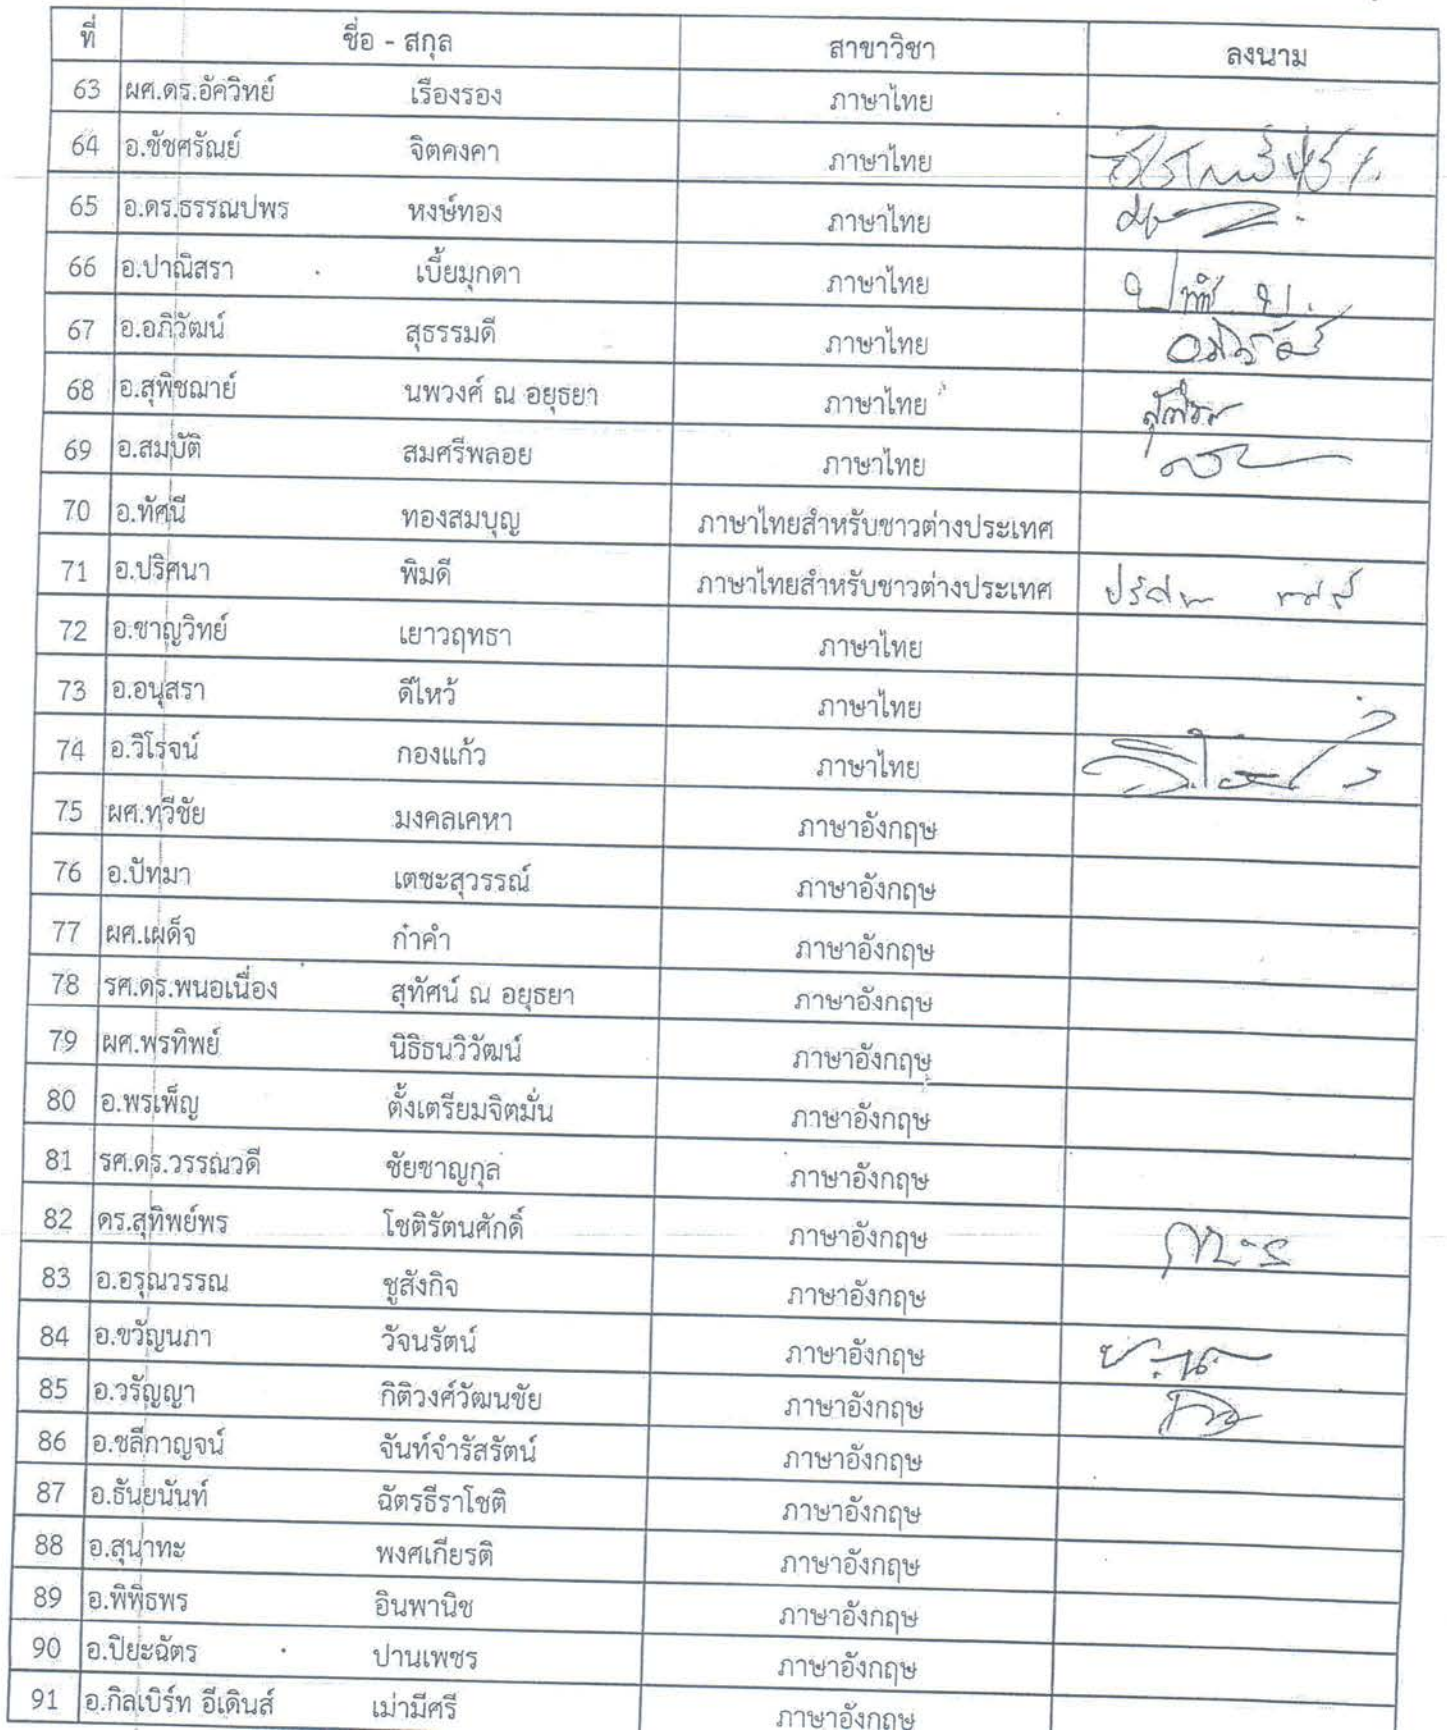 ที่ ชื่อ - สกุล สาขาวิชา ลงนาม
63 ผศ.ดร.อัควิทย์ เรืองรอง ภาษาไทย
64 อ.ชัชศรัณย์ จิตคงคา ภาษาไทย
65 อ.ดร.ธรรณปพร หงษ์ทอง ภาษาไทย
66 อ.ปาณิสรา เบี้ยมุกดา ภาษาไทย
67 อ.อภิวัฒน์ สุธรรมดี ภาษาไทย
68 อ.สุพิชฌาย์ นพวงศ์ ณ อยุธยา ภาษาไทย
69 อ.สมบัติ สมศรีพลอย ภาษาไทย
70 อ.ทัศนี ทองสมบุญ ภาษาไทยสำหรับชาวต่างประเทศ
71 อ.ปริศนา พิมดี ภาษาไทยสำหรับชาวต่างประเทศ
72 อ.ชาญวิทย์ เยาวฤทธา ภาษาไทย
73 อ.อนุสรา ดีไหว้ ภาษาไทย
74 อ.วิโรจน์ กองแก้ว ภาษาไทย
75 ผศ.ทวีชัย มงคลเคหา ภาษาอังกฤษ
76 อ.ปัทมา เตชะสุวรรณ์ ภาษาอังกฤษ
77 ผศ.เผด็จ ก๋าคำ ภาษาอังกฤษ
78 รศ.ดร.พนอเนื่อง สุทัศน์ ณ อยุธยา ภาษาอังกฤษ
79 ผศ.พรทิพย์ นิธิธนวิวัฒน์ ภาษาอังกฤษ
80 อ.พรเพ็ญ ตั้งเตรียมจิตมั่น ภาษาอังกฤษ
81 รศ.ดร.วรรณวดี ชัยชาญกุล ภาษาอังกฤษ
82 ดร.สุทิพย์พร โชติรัตนศักดิ์ ภาษาอังกฤษ
83 อ.อรุณวรรณ ชูสังกิจ ภาษาอังกฤษ
84 อ.ขวัญนภา วัจนรัตน์ ภาษาอังกฤษ
85 อ.วรัญญา กิติวงศ์วัฒนชัย ภาษาอังกฤษ
86 อ.ชลีกาญจน์ จันท์จำรัสรัตน์ ภาษาอังกฤษ
87 อ.ธันยนันท์ ฉัตรธีราโชติ ภาษาอังกฤษ
88 อ.สุนาทะ พงศเกียรติ ภาษาอังกฤษ
89 อ.พิพิธพร อินพานิช ภาษาอังกฤษ
90 อ.ปิยะฉัตร ปานเพชร ภาษาอังกฤษ
91 อ.กิลเบิร์ท อีเดินส์ เม่ามีศรี ภาษาอังกฤษ